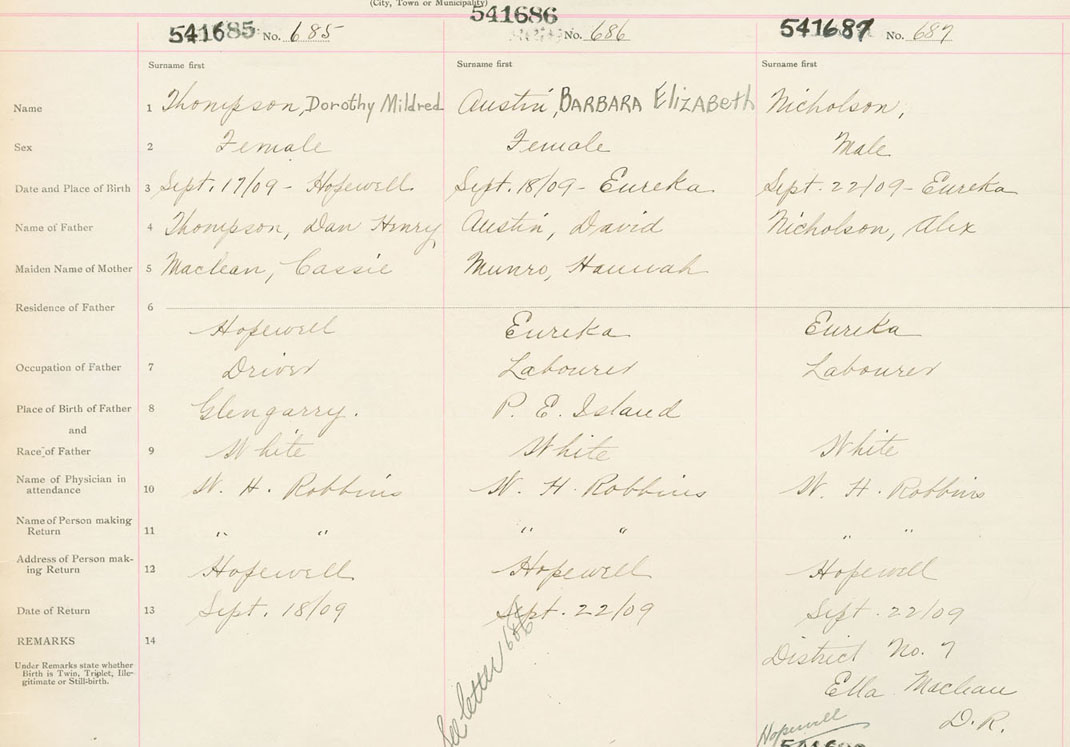 (City, Town or Municipality)
541685 No. 685 541686 No. 686 541687 No. 687
Surname first Surname first Surname first
Name 1 Thompson, Dorothy Mildred Austin, BARBARA ElizABeth Nicholson,
Sex 2 Female Female Male
Date and Place of Birth 3 Sept. 17/09 - Hopewell Sept. 18/09 - Eureka Sept. 22/09 - Eureka
Name of Father 4 Thompson, Dan Henry Austin, David Nicholson, Alex
Maiden Name of Mother 5 Maclean, Cassie Munro, Hannah
Residence of Father 6
Hopewell Eureka Eureka
Occupation of Father 7 Driver Labourer Labourer
Place of Birth of Father 8 Glengarry. P. E. Island
and
Race of Father 9 White White White
Name of Physician in
attendance 10 W. H. Robbins W. H. Robbins W. H. Robbins
Name of Person making
Return 11 " " " " " "
Address of Person mak-
ing Return 12 Hopewell Hopewell Hopewell
Date of Return 13 Sept. 18/09 Sept. 22/09 Sept. 22/09
REMARKS 14
Under Remarks state whether
Birth is Twin, Triplet, Ille-
gitimate or Still-birth.
See letter 686
District No. 7
Ella Maclean
D.R.
Hopewell